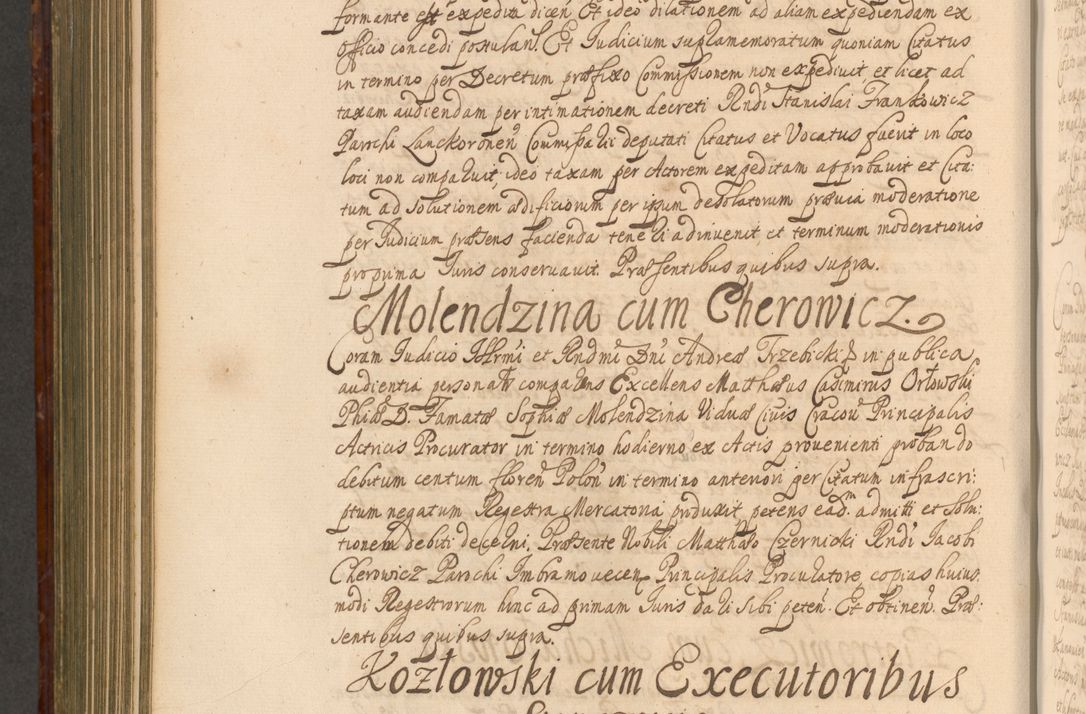 formante est expedita dicen. Et ideo dilationem ad aliam expediendam ex
Officio concedi postulans. Et Judicium supramemoratum quoniam Citatus
in termino per Decretum præfixo Commissionem non expedivit, et licet ad
taxam audiendam per intimationem decreti Rndi Stanislai Frankowicz
Parochi Lanckoronen Commissarii deputati Citatus et Vocatus fuerit in loco
loci non comparuit, ideo taxam per Actorem expeditam approbavit et Cita:
tum ad solutionem ædificiorum per ipsum desolatorum prævia moderatione
per Judicium præsens facienda teneri adinvenit et terminum moderationis
pro prima Juris conservavit. Præsentibus quibus supra.
Molendzina cum Cherowicz.
Coram Judicio Illrmi et Rndmi Dni Andreæ Trzebicki in publica
audientia personalr comparens Excellens Matthæus Casimirus Orłowski
Phiæ D. Famatæ Sophiæ Molendzina Viduæ Civis Cracou Principalis
Actricis Procurator in termino hodierno ex Actis provenienti probando
debitum centum floren Polon in termino anteriori per Citatum infrascri:
ptum negatum Regestra Mercatoria produxit, petens ead.m admitti et Solu:
tionem debiti decerni. Præsente Nobili Matthæo Czernicki Rndi Jacobi
Cherowicz Parochi Imbramovecen Principalis Procuratore, copias huius
modi Regestrorum hinc ad primam Juris dari sibi peten. Et obtinen. Præ:
sentibus quibus supra.
Kozłowski cum Executoribus